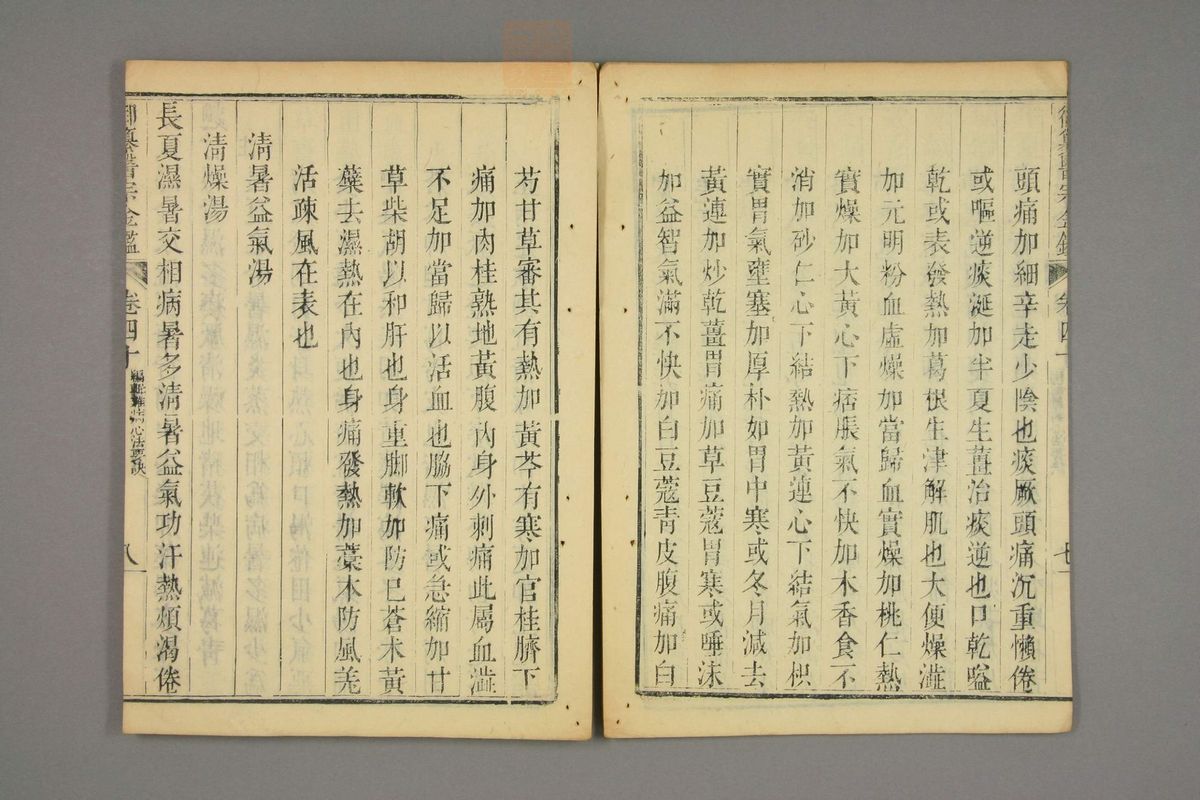 御纂醫宗金鑑 卷四十 七
頭痛加細辛走少陰也痰厥頭痛沉重懶倦
或嘔逆痰涎加半夏生薑治痰逆也口乾嗌
乾或表發熱加葛根生津解肌也大便燥澁
加元明粉血虛燥加當歸血實燥加桃仁熱
實燥加大黃心下痞脹氣不快加木香食不
消加砂仁心下結熱加黃連心下結氣加枳
實胃氣壅塞加厚朴如胃中寒或冬月減去
黃連加炒乾薑胃痛加草豆蔻胃寒或唾沫
加益智氣滿不快加白豆蔻靑皮腹痛加白
芍甘草審其有熱加黃芩有寒加官桂臍下
痛加肉桂熟地黃腹內身外刺痛此屬血澁
不足加當歸以活血也脇下痛或急縮加甘
草柴胡以和肝也身重脚軟加防巳蒼朮黃
蘗去濕熱在內也身痛發熱加藁本防風羗
活疎風在表也
淸暑益氣湯
淸燥湯
長夏濕暑交相病暑多淸暑益氣功汗熱煩渴倦
御纂醫宗金鑑 卷四十 編輯雜病心法要訣 八